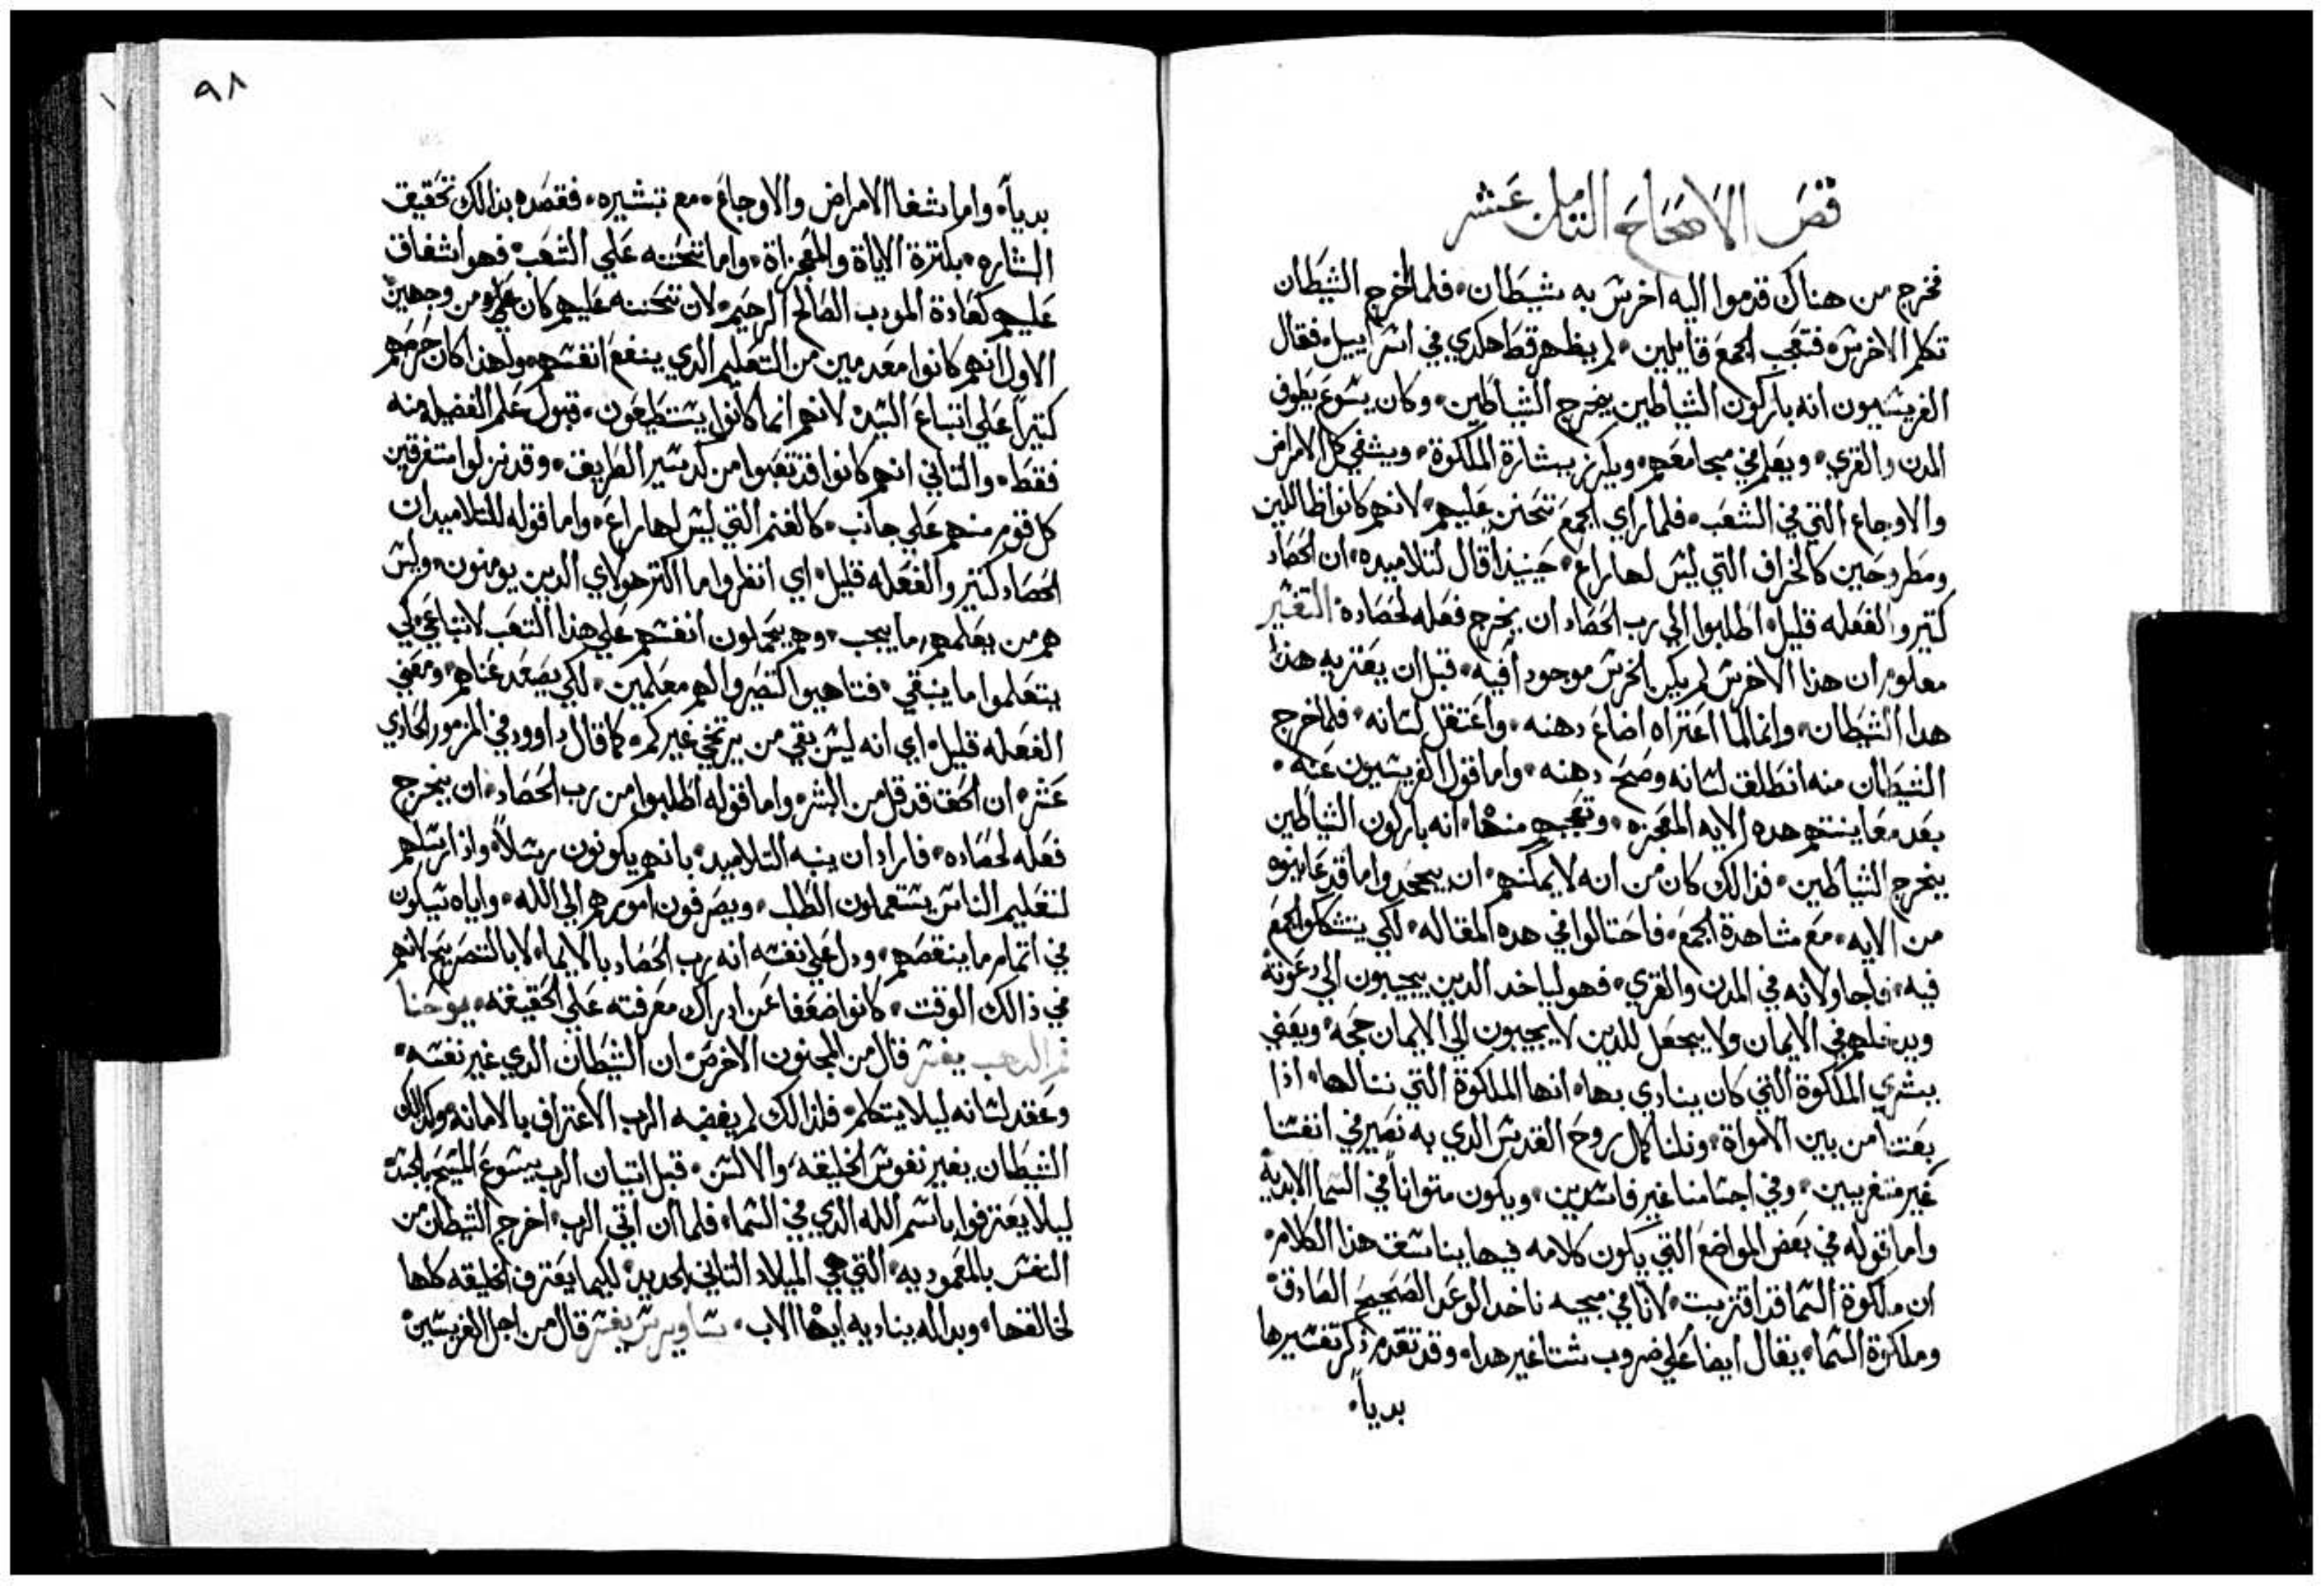 فص الاصحاح التامن عشر
فخرج من هناك قدموا اليه اخرس به شيطان فلما اخرج الشيطان
تكلم الاخرس فتعجب الجمع قايلين لم يظهر قط هكدي في اسراييل فقال
الفريسيون انه باركون الشياطين يخرج الشياطين وكان يسوع يطوف
المدن والقري ويعلم في مجامعهم ويكرز ببشارة الملكوة ويشفي كل الامراض
والاوجاع التي في الشعب فلما راي الجمع تحنن عليهم لانهم كانوا ضالين
ومطروحين كالخراف التي ليس لها راع حينيذ قال لتلاميده ان الحصاد
كتير والفعله قليل اطلبوا الي رب الحصاد ان يخرج فعله لحصاده التفسير
معلوم ان هذا الاخرس لم يكن الخرس موجودا فيه قبل ان يعتريه هذا
هدا الشيطان وانما لما اعتراه اضاع دهنه واعتقل لسانه فلما خرج
الشيطان منه انطلق لسانه وصح دهنه واما قول الفريسيون عنه
بعد معاينتهم هده الايه المعجزه وتعجبهم منها انه باركون الشياطين
يخرج الشياطين فذالك كان من انه لا يمكنهم ان يجحدوا ما قد عاينوه
من الايه مع مشاهدة الجمع فاحتالوا في هده المقاله لكي يتشككوا الجمع
فيه فاجا ولانه في المدن والقري فهو لياخد الدين يجيبون الي دعوته
ويدخلهم في الايمان ولا يجعل للدين لا يجيبون الي الايمان حجه ويعني
ببشري الملكوة التي كان ينادي بها انها الملكوة التي ننالها اذا
بعتنا من بين الامواة ونلنا كمال روح القدس الدي به نصير في انفسنا
غير متغربين وفي اجسامنا غير فاسدين ويكون متوانا في السما الابديه
واما قوله في بعض المواضع التي يكون كلامه فيها يناسب هذا الكلام
ان ملكوة السما قد اقتربت لانا في مجيه ناخد الوعد الصحيح الصادق
وملكوة السما يقال ايضا علي ضروب شتا غير هدا وقد تقدم ذكر تفسيرها
بديا
٩٨
بديا واما شفا الامراض والاوجاع مع تبشيره فقصده بذالك تحقيق
البشاره بكترة الاياة والمعجزاة واما تحننه علي الشعب فهو اشفاق
عليهم كعادة المودب الصالح الرحيم لان تحننه عليهم كان علي من وجهين
الاول انهم كانوا معدمين من التعليم الدي ينفع انفسهم ولهذا كان حرصهم
كتيرا علي اتباع السيد لانهم انما كانوا يستطيعون قبول علم الفضيله منه
فقط والتاني انهم كانوا قد تعبوا من كد سير الطريق وقد نزلوا متفرقين
كل قوم منهم علي جانب كالغنم التي ليس لها راع واما قوله للتلاميد ان
الحصاد كتير والفعله قليل اي انظروا ما اكتر هولاي الدين يومنون وليس
هم من يعلمهم ما يجب وهم يحملون انفسهم علي هذا التعب لاتباعي لكي
يتعلموا ما ينبغي فتاهبوا لتصيروا لهم معلمين لكي يصعد عناهم ومعني
الفعله قليل اي انه ليس بقي من يرتجي غيركم كما قال داوود في المزمور الحادي
عشر ان الحق قد قل من البشر واما قوله اطلبوا من رب الحصاد ان يخرج
فعله لحصاده فاراد ان ينبه التلاميد بانهم يكونون رسلا واذا ارسلهم
لتعليم الناس يستعملون الطلب ويصرفون امورهم الي الله واياه يسلون
في اتمام ما ينقصهم ودل علي نفسه انه رب الحصاد بالايما لا بالتصريح لانهم
في ذالك الوقت كانوا ضعفا عن ادراك معرفته علي الحقيقه يوحنا
فم الدهب يفسر قال من المجنون الاخرس ان الشيطان الدي غير نفسه
وعقد لسانه ليلا يتكلم فلذالك لم يغصبه الرب الاعتراف بالامانه وكدالك
الشيطان يغير نفوس الخليقه والالسن قبل اتيان الرب يسوع المسيح بالجسد
ليلا يعترفوا باسم الله الدي في السما فلما ان اتي الرب اخرج الشيطان من
النفس بالمعموديه التي هي الميلاد التاني الجديد لكيما يعترف الخليقه كلها
لخالقها وبداله يناديه ايها الاب ساويرس يفسر قال من اجل الفريسين